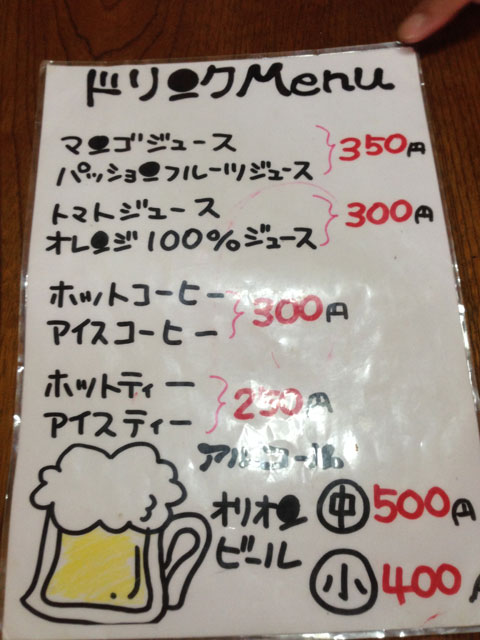 ドリ●クMenu
マ●ゴジュース
パッショ●フルーツジュース
350円
トマトジュース
オレ●ジ100%ジュース
300円
ホットコーヒー
アイスコーヒー
300円
ホットティー
アイスティー
250円
アルコール
オリオ●
ビール
中 500円
小 400円